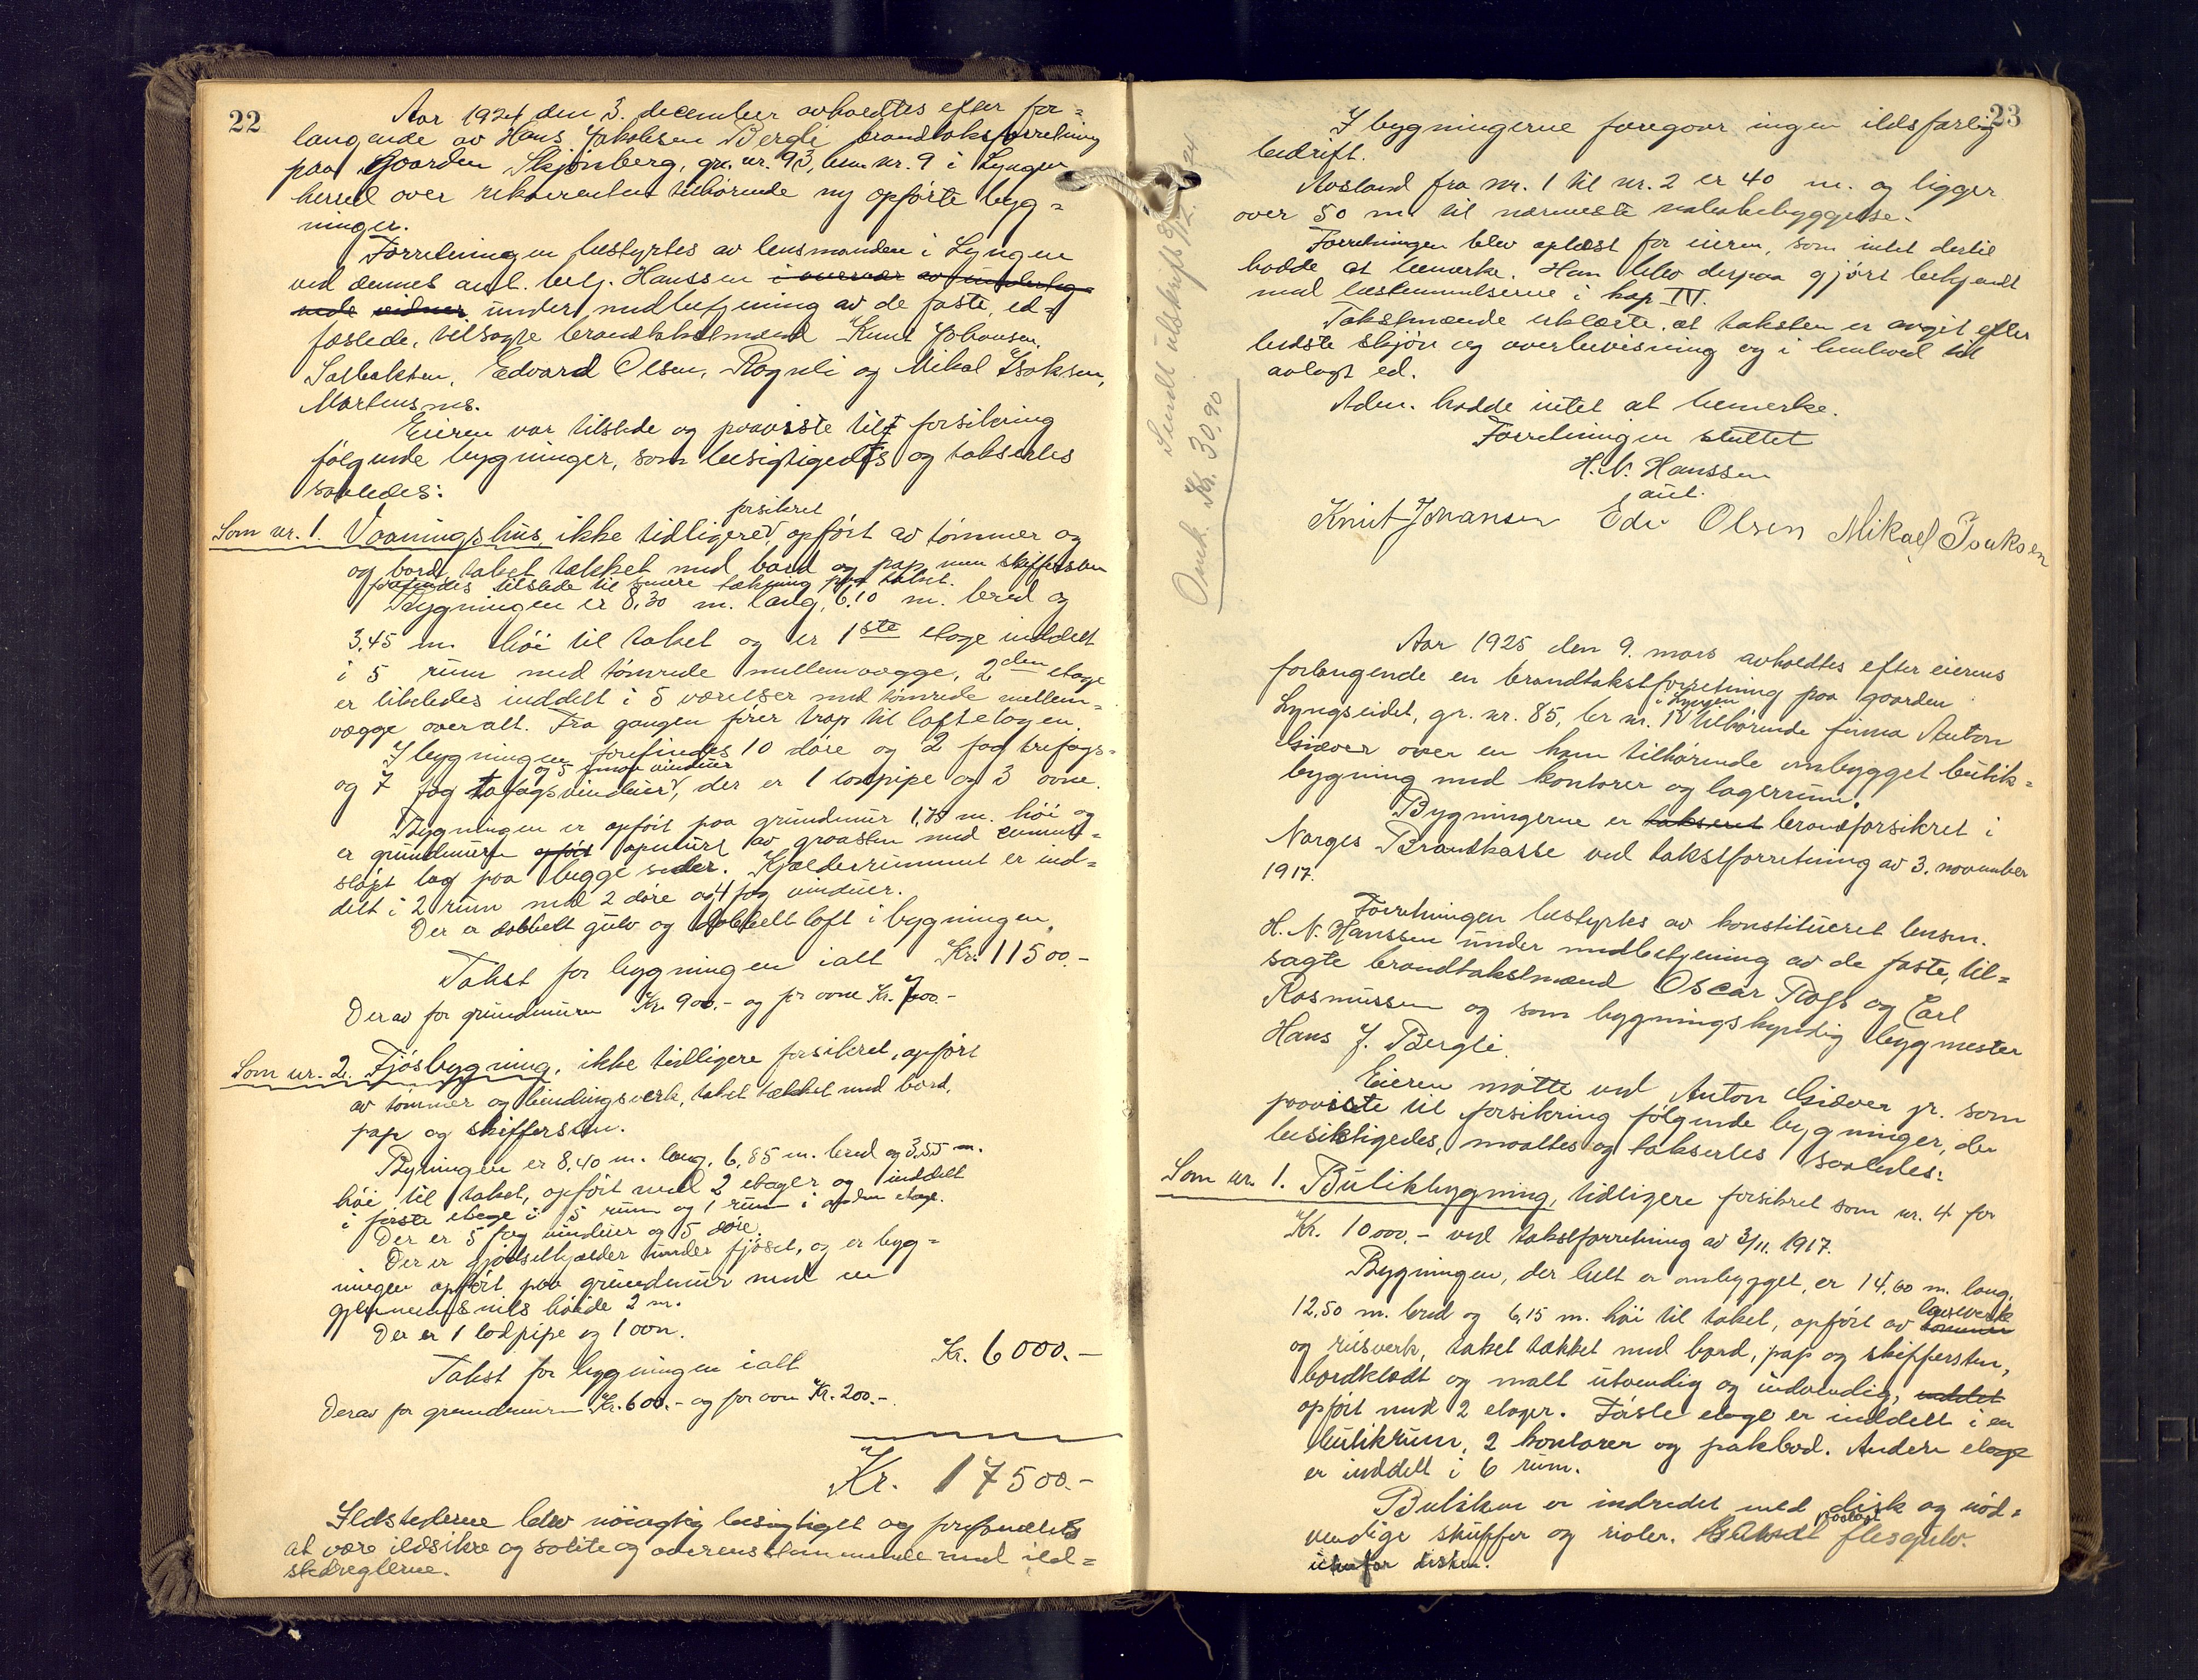 22
Aar 1924 den 3. december avholdtes efter for-
langende av Hans Jakobsen Bergli brandtakstforretning
paa gaarden Skjönberg, gr. nr. 93, br. nr. 9 i Lyngen
herred over rekvirenten tilhörende ny opförte byg-
ninger.
Forretningen bestyrtes av lensmanden i Lyngen
ved dennes aut. betj. Hanssen i overvær av underteg-
nede vidner under medbetjening av de faste, ed-
fæstede, tilsagte brandtakstmænd Knut Johansen,
Solbakken, Edvard Olsen, Rognli og Mikal Isaksen,
Mortensnes.
Eieren var tilstede og paaviste til forsikring
fölgende bygninger, som besigtigedes og takseertes
saaledes:
forsikret
Som nr. 1. Vaaningshus, ikke tidligere, opfört av tömmer og
og bord, taket tækket med bord og pap, men skiffersten
forefindes tilstede til senere tækning paa taket.
Bygningen er 8,30 m. lang, 6,10 m. bred og
3,45 m. höi til taket og er 1ste etage inddelt
i 5 rum med tömrede mellemvægge, 2den etage
er likeledes inddelt i 5 værelser med tömrede mellem-
vægge overalt. Fra gangen förer trap til loftetagen.
I bygningen forefindes 10 döre og 2 fag trefags-
og 5 smaa vinduer
og 7 fag tofagsvinduer, der er 1 lodpipe og 3 ovne.
Bygningen er opfört paa grundmur 1,75 m. höi og
er grundmuren opfört opmuret av graasten med cement-
slöpt lag paa begge sider. Kjælderrummet er ind-
delt i 2 rum med 2 döre og 4 fag vinduer.
Der er dobbelt gulv og dobbelt loft i bygningen.
Takst for bygningen ialt Kr. 11500.-
Derav for grundmuren Kr. 900.- og for ovne Kr. 700.-
Som nr. 2. Fjösbygning, ikke tidligere forsikret, opfört
av tömmer og bindingsverk, taket tækket med bord,
pap og skiffersten.
Bygningen er 8,40 m. lang, 6,85 m. bred og 3,55 m.
höi til taket, opfört med 2 etager og inddelt
i förste etage i 5 rum og 1 rum i anden etage.
Der er 5 fag vinduer og 5 döre.
Der er gjödselkjælder under fjöset, og er byg-
ningen opfört paa grundmur med en
gjennemsnits höide 2 m.
Der er 1 lodpipe og 1 ovn.
Takst for bygningen ialt Kr. 6000.-
Derav for grundmuren Kr. 600.- og for ovn Kr. 200.-
Kr. 17500.-
Ildstederne blev nöiagtig besigtiget og forefandtes
at være ildsikre og solite og overensstemmende med ild-
stedreglerne.
Sendt utskrift 8/12. 24
Omk. Kr. 30,90
23
I bygningerne foregaar ingen ildsfarlig
bedrift.
Avstand fra nr. 1 til nr. 2 er 40 m. og ligger
over 50 m. til nærmeste nabobebyggelse.
Forretningen blev oplæst for eieren, som intet dertil
hadde at bemerke. Han blev derpaa gjört bekjendt
med bestemmelserne i kap IV.
Takstmændene erklærte, at taksten er avgit efter
bedste skjön og overbevisning og i henhold til
avlagt ed.
Adm. hadde intet at bemerke.
Forretningen sluttet
H. N. Hanssen
aut.
Knut Johansen Edv Olsen Mikael Isaksen
Aar 1925 den 9. mars avholdtes efter eierens
forlangende en brandtakstforretning paa gaarden
i Lyngen
Lyngseidet, gr. nr. 85, br nr. 1 tilhörende firma Anton
Giæver over en ham tilhörende ombygget butik-
bygning med kontorer og lagerrum.
Bygningerne er takseret brandforsikret i
Norges Brandkasse ved takstforretning av 3. november
1917.
Forretningen bestyrtes av konstitueret lensm.
H. N. Hanssen under medbetjening av de faste, til-
sagte brandtakstmænd Oscar Rogs og Carl
Rasmussen og som bygningskyndig bygmester
Hans J. Bergli.
Eieren mötte ved Anton Giæver jr. som
paaviste til forsikring fölgende bygninger, der
besiktigedes, maaltes og takseertes saaledes:
Som nr. 1. Butikbygning, tidligere forsikret som nr. 4 for
Kr. 10000.- ved takstforretning av 3/11. 1917.
Bygningen, der helt er ombygget, er 14,60 m. lang,
12,50 m. bred og 6,15 m. höi til taket, opfört av tömmer
lauverk
og reisverk, taket tækket med bord, pap og skiffersten,
bordklædt og malt utvendig og indvendig, inddelt
opfört med 2 etager. Förste etage er inddelt i en
butikrum, 2 kontorer og pakbod. Anden etage
er inddelt i 6 rum.
Butiken er indredet med disk og nöd-
vendige skuffer og reoler. flisgulv
utenfor disken.